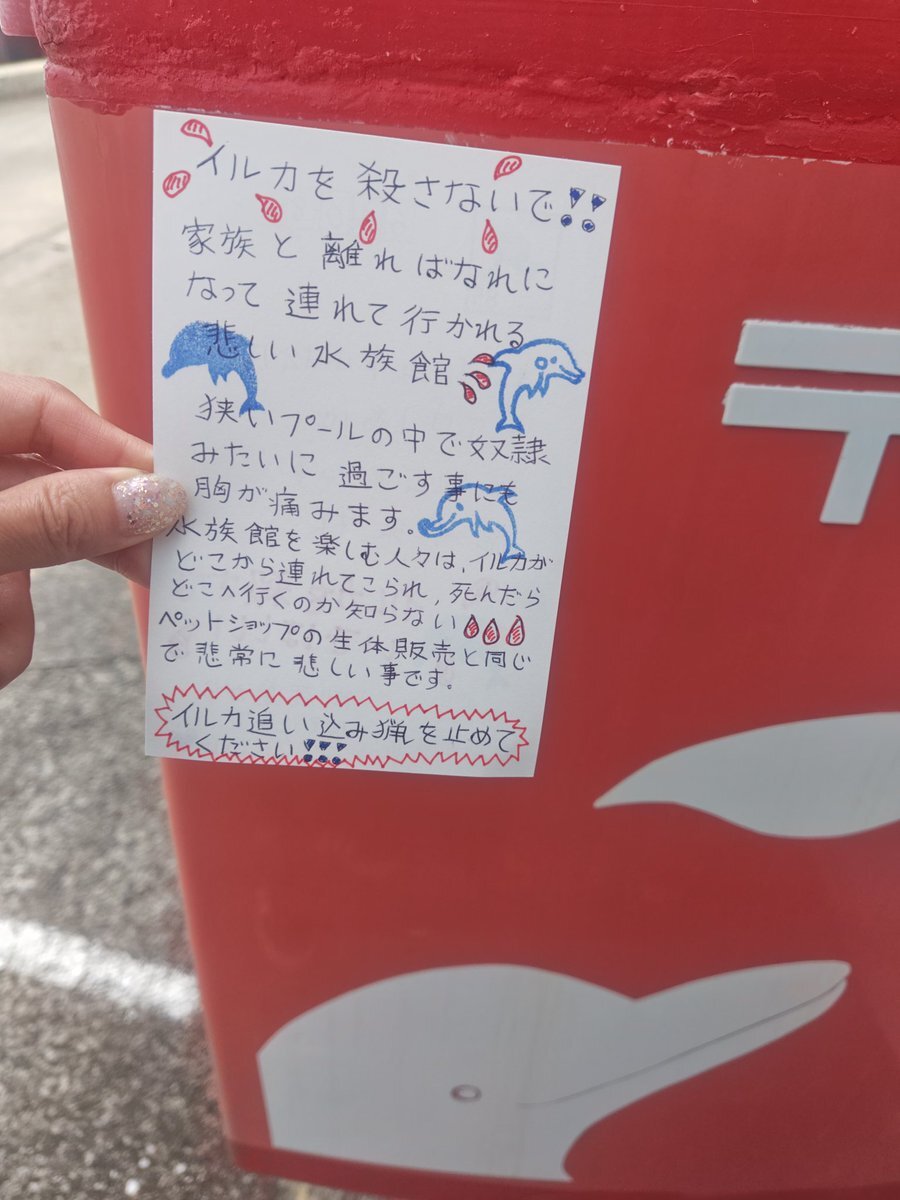 イルカを殺さないで!!
家族と離ればなれに
なって連れて行かれる
悲しい水族館
狭いプールの中で奴隷
みたいに過ごす事にも
胸が痛みます。
水族館を楽しむ人々は、イルカが
どこから連れてこられ、死んだら
どこへ行くのか知らない
ペットショップの生体販売と同じ
で悲常に悲しい事です。
イルカ追い込み猟を止めて
ください!!!
〒